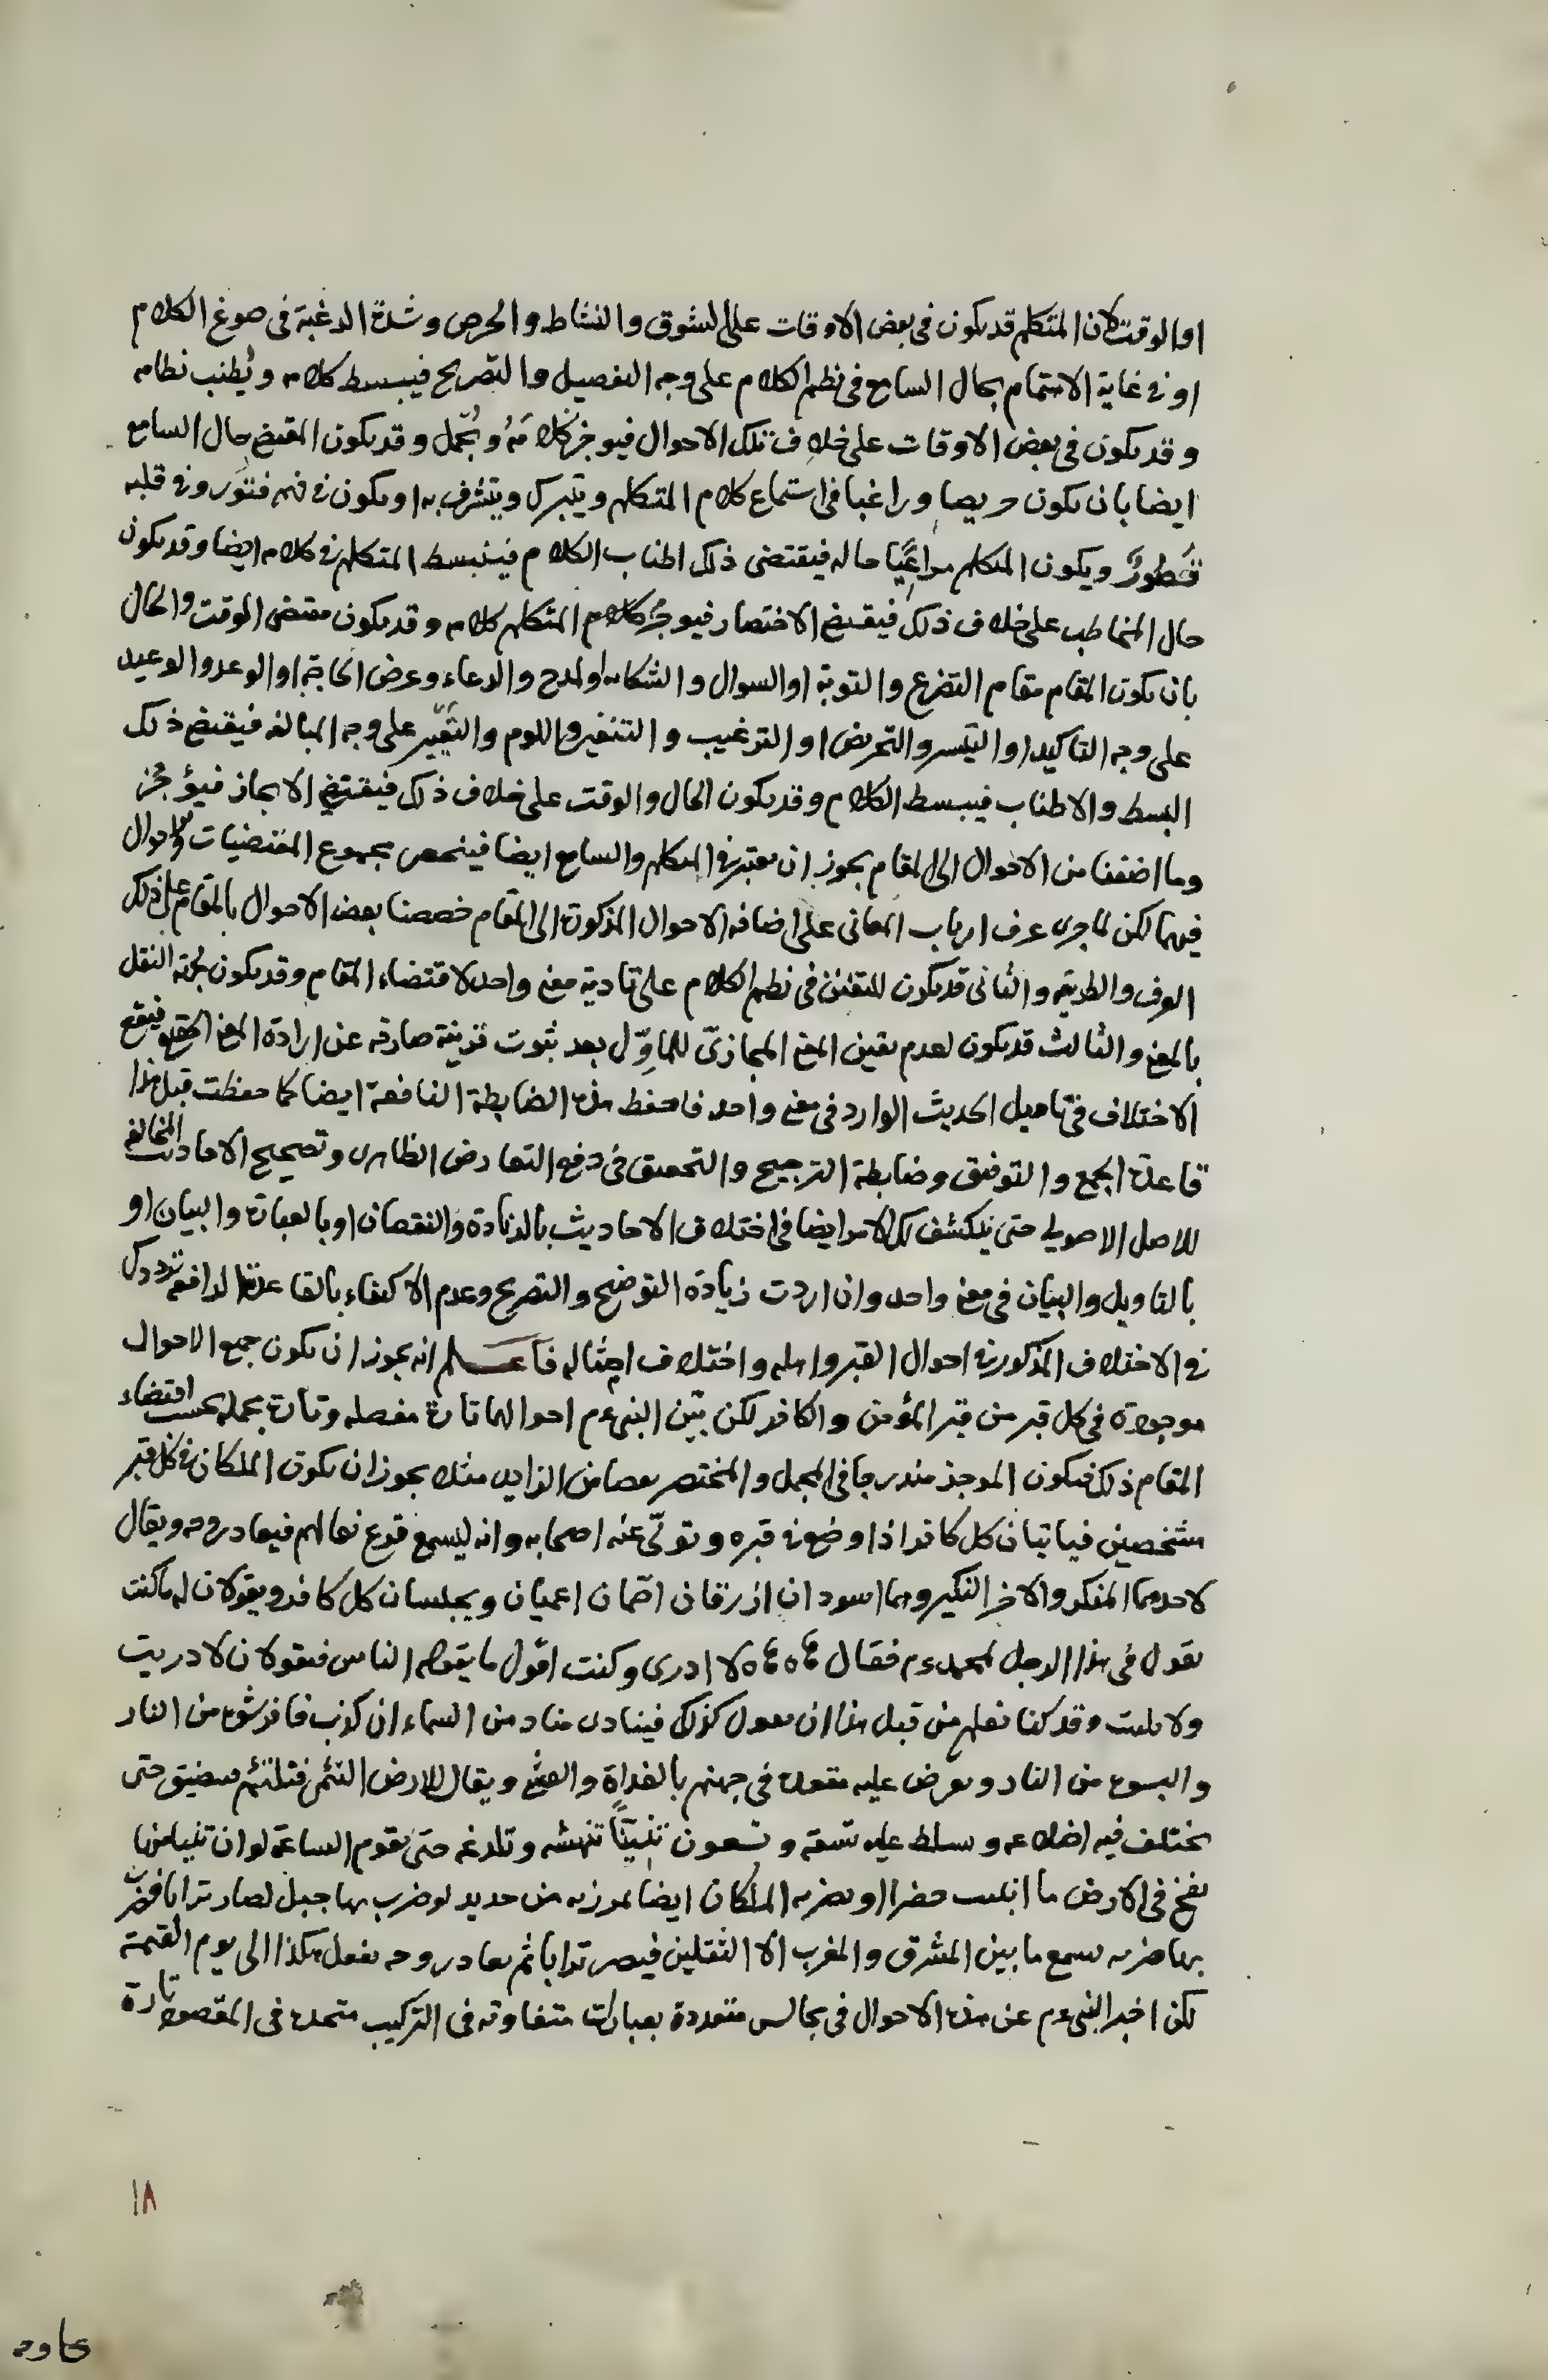 او الوقت لان المتكلم قد يكون في بعض الاوقات على الشوق والنشاط والحرص وشدة الرغبة في صوغ الكلام
او في غاية الاهتمام بحال السامع في نظم الكلام على وجه التفصيل والتصريح فيبسط كلامه ويُطنب نظامه
وقد يكون في بعض الاوقات على خلاف تلك الاحوال فيوجز كلامَهُ ويُجمل وقد يكون المقتضى حال السامع
ايضا بان يكون حريصا وراغبا في استماع كلام المتكلم ويتبرك ويتشرف به او يكون في فهمه فتور وفي قلبه
قُطورٌ ويكون المتكلم مراعيًا حاله فيقتضى ذلك اطناب الكلام فينبسط المتكلم في كلامه ايضا وقد يكون
حال المخاطب على خلاف ذلك فيقتضي الاختصار فيوجز كلام المتكلم كلامه وقد يكون مقتضى الوقت والحال
بان يكون المقام مقام التضرع والتوبة او السوال والشكاية او المدح والدعاء وعرض الحاجة او الوعد والوعيد
على وجه التاكيد او التيسر والتحريض او الترغيب والتنفير واللوم والتعيير على وجه المبالغه فيقتضي ذلك
البسط والاطناب فيبسط الكلام وقد يكون الحال والوقت على خلاف ذلك فيقتضي الايجاز فيؤجز
وما اضفنا من الاحوال الى المقام يجوز ان يعتبر في المتكلم والسامع ايضا فينحصر مجموع المقتضيات والاحوال
فيهما لكن لما جرى عرف ارباب المعانى على اضافه الاحوال المذكورة الى المقام خصصنا بعض الاحوال بالمقام على ذلك
العرف والطريقه والثانى قد يكون للتفنن في نظم الكلام على تادية معنى واحد لاقتضاء المقام وقد يكون لجهة النقل
بالمعنى والثالث قد يكون لعدم تعين المعنى المجازىّ للماوّل بعد ثبوت قرينة صارفه عن ارادة المعنى الحقيقي فيقع
الاختلاف في تاميل الحديث الوارد في معنى واحد فاحفظ هذه الضابطة النافعة ايضا كما حفظت قبل هذا
قاعدة الجمع والتوفيق وضابطة الترجيح والتحقيق في دفع التعارض الظاهرى وتصحيح الاحاديث المخالفه
للاصل الاصولي حتى ينكشف لك الامر ايضا في اختلاف الاحاديث بالزيادة والنقصان او بالعبارة والبيان او
بالتاويل والبيان في معنى واحد وان اردت زيادة التوضيح والتصريح وعدم الاكتفاء بالقاعدة الدافعه ترددك
في الاختلاف المذكور في احوال القبر واهله واختلاف امثاله فاعلم انه يجوز ان يكون جميع الاحوال
موجودة في كل قبر من قبر المؤمن والكافر لكن بيّن النبى عم احوالهما تارة مفصله وتارة مجمله بحسب اقتضاء
المقام ذلك فيكون الموجز مندرجا في المجمل والمختصر بعضا من الزايد مثلا يجوز ان يكون الملكان في كل قبر
مشخصين فياتيان كل كافر اذا وضع في قبره وتولّى عنه اصحابه وانه ليسمع قرع نعالهم فيعاد روحه ويقال
لاحدهما المنكر والاخر النكير وهما اسودان ازرقان اصمان اعميان ويجلسان كل كافر ويقولان له ما كنت
تقول في هذا الرجل لمحمد عم فقال هاه هاه لا ادرى وكنت اقول ما يقوله الناس فيقولان لا دريت
ولا تليت وقد كنا نعلم من قبل هذا ان تقول كذلك فينادى مناد من السماء ان كذب فافرشوه من النار
والبسوه من النار ويعرض عليه مقعده في جهنم بالغداة والعشي ويقال للارض التئمى فتلتئم فيضيق حتى
يختلف فيه اضلاعه ويسلط عليه تسعة وتسعون تنّينًا تنهشه وتلدغه حتى تقوم الساعة لو ان تنينا منها
نفخ في الارض ما انبتت خضرا او يضربه الملكان ايضا بمرزبه من حديد لو ضرب بها جبل لصار ترابا فيضرب
بها ضربه يسمع ما بين المشرق والمغرب الا الثقلين فيصير ترابا ثم يعاد روحه يفعل هكذا الى يوم القيمة
لكن اخبر النبى عم عن هذه الاحوال في مجالس متعددة بعبارات متفاوته في التركيب متحده في المقصود تارة
١٨